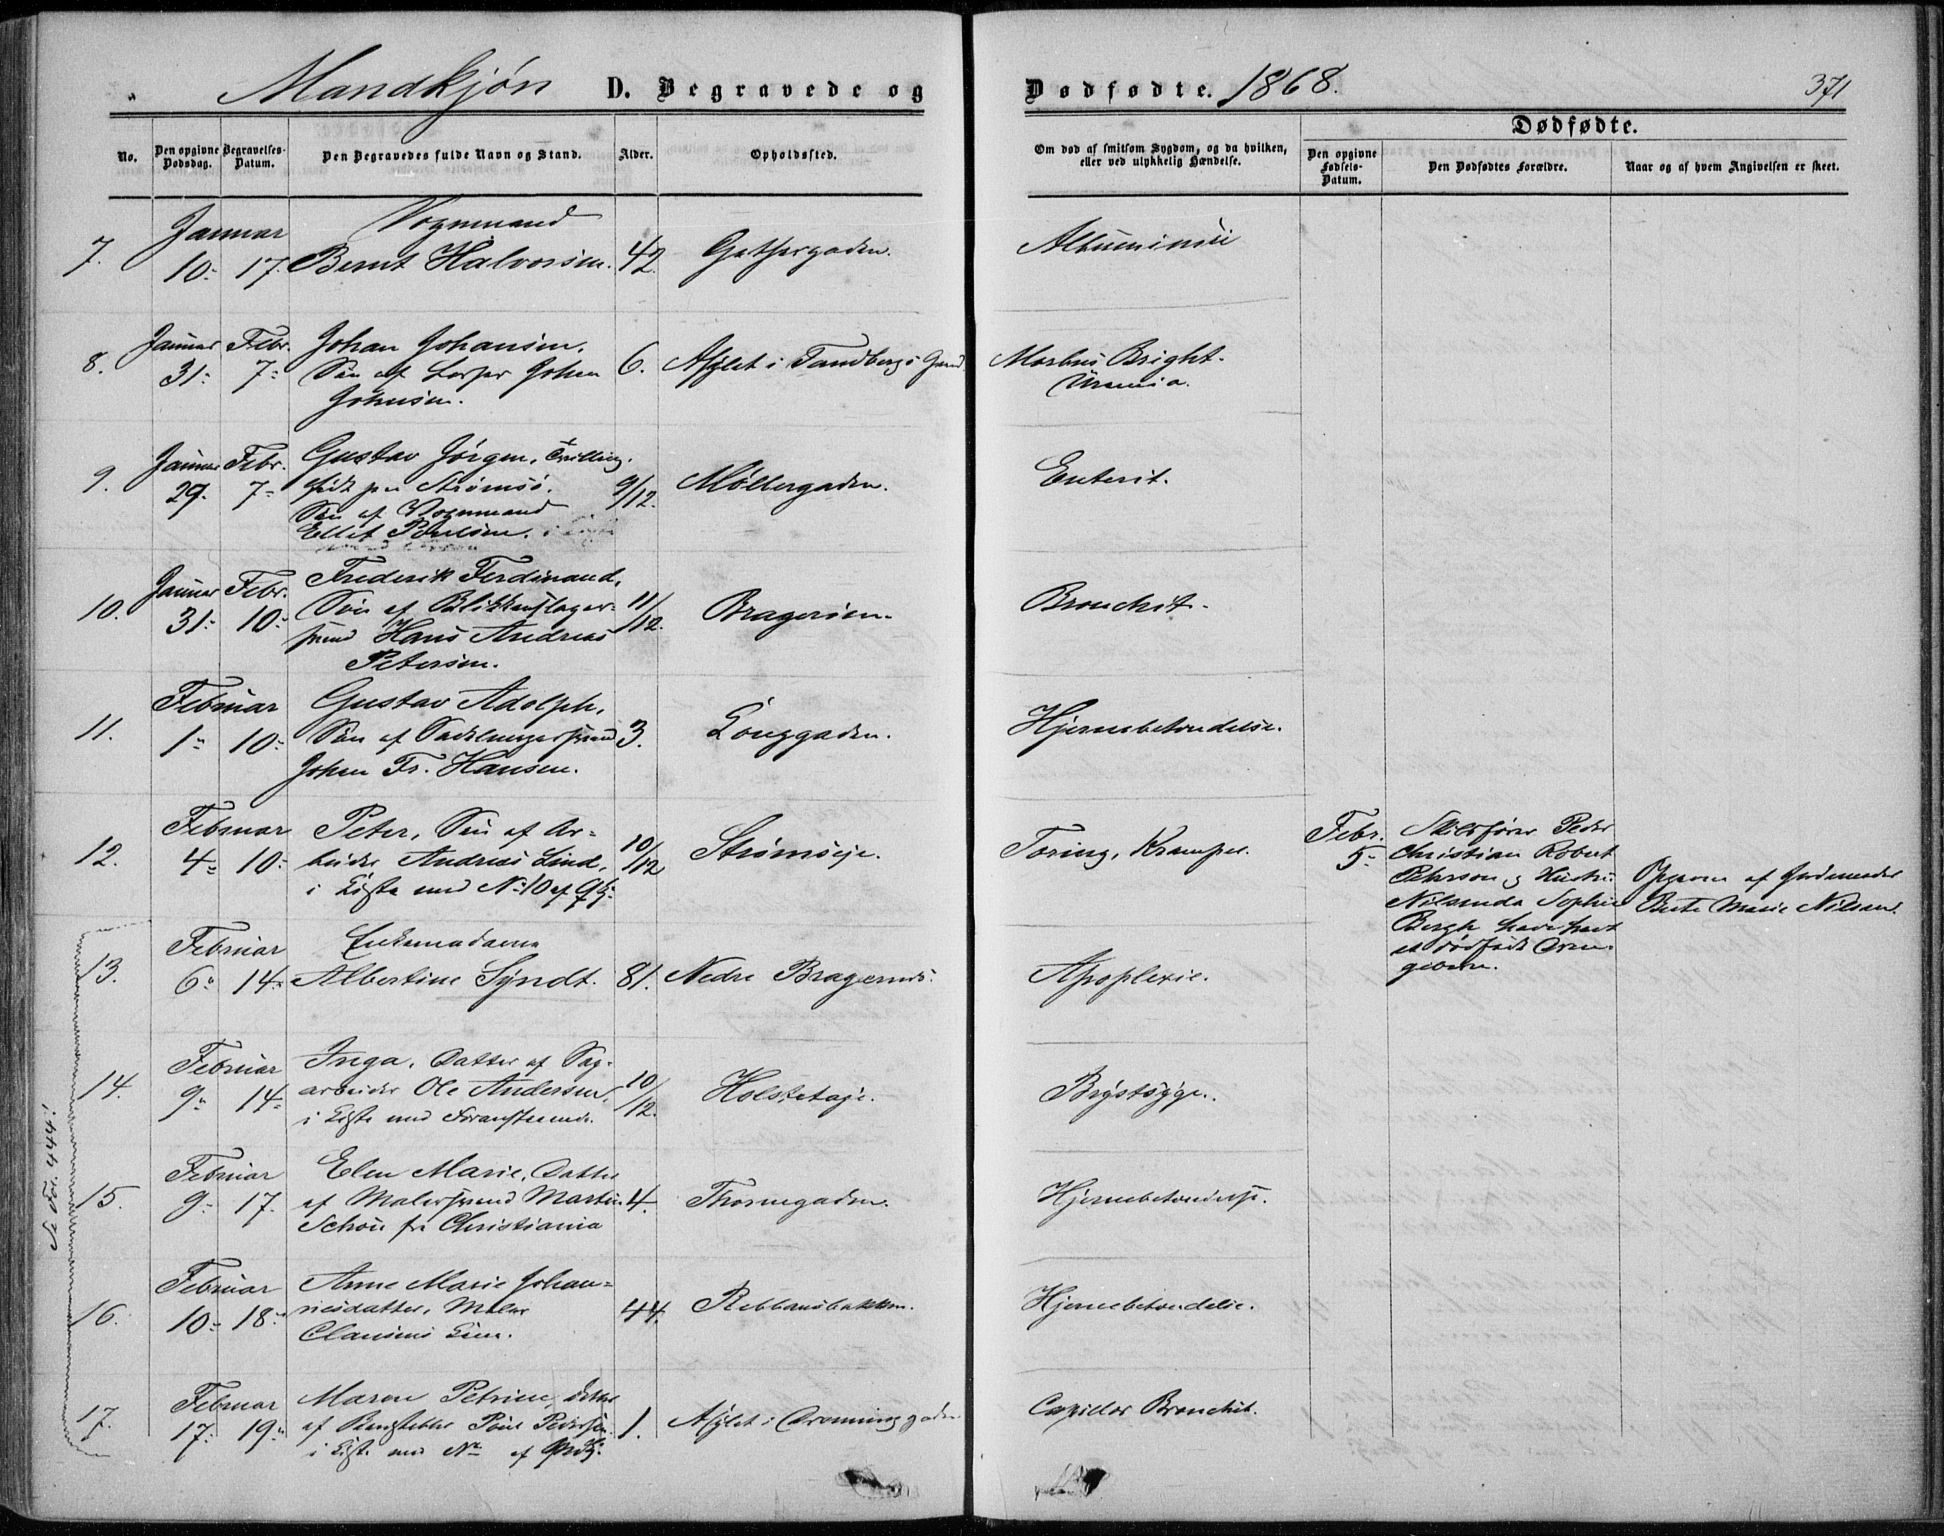 Mandkjøn D. Begravede og Dødfødte. 1868. 371
No.
Den opgivne Dødsdag.
Begravelses-Datum.
Den Begravedes fulde Navn og Stand.
Alder.
Opholdssted.
Om død af smitsom Sygdom, og da hvilken, eller ved ulykkelig Hændelse.
Dødfødte.
Den opgivne Fødsels-Datum.
Den Dødfødtes Forældre.
Naar og af hvem Angivelsen er skeet.
Januar Vognmand
7. 10. 17. Bernt Halvorsen. 42. Gethergaden. Albuminuri
Januar Febr. Johan Johansen.
8. 31. 7. Søn af Losser Johan 6. Asylet i Tandbergs Gaard Morbus Bright.
Johnsen. Uremia.
Januar Febr. Gustav Jørgen, Tvilling,
9. 29. 7. født paa Strømsø. 9/12. Møllergaden. Enterit.
Søn af Vognmand
Ellef Poulsen.
Januar Febr. Frederik Ferdinand,
10. 31. 10. Søn af Blikkenslager- 11/12. Bragerøen. Bronchit.
svend Hans Andreas
Petersen.
Februar Gustav Adolph,
11. 1. 10. Søn af Sadelmagersvend 3. Længgaden. Hjernebetændelse.
Johan Fr. Hansen.
Februar Peter, Søn af Ar-
12. 4. 10. beider Andreas Lind, 10/12 Strømsøje. Tæring, Kramper.
i Kiste med No. 10 af
Febr. 5. Skibsfører Peder
Christian Robert
Pehrson og Hustru
Nilsenda Sophie
Bergh have havt
et dødfødt Dren-
gebarn.
Opgiven af Jordemoder
Berte Marie Nilsen.
Februar Enkemadame
13. 6. 14. Albertine Syndt. 81. Nedre Bragernes. Apoplexie.
Februar Inga, Datter af Sag-
14. 9. 14. arbeider Ole Andersen, 10/12. Holstetøje. Brystsyge.
i Kiste med Foranstaaende.
Februar Elen Marie, Datter
15. 9. 17. af Malersvend Martin 4. Thornegaden. Hjernebetændelse.
Schou fra Christiania
Februar Anne Marie Johan-
16. 10. 18. nesdatter, Maler 44. Rebbansbakken. Hjernebetændelse.
Clausens Enke.
Februar Maren Petrine, Datter
17. 17. 19. af Poul Pedersen 1. Asylet i Dronninggaden Capillær Bronchit.
i Kiste med No. af
Se Fol. 444!